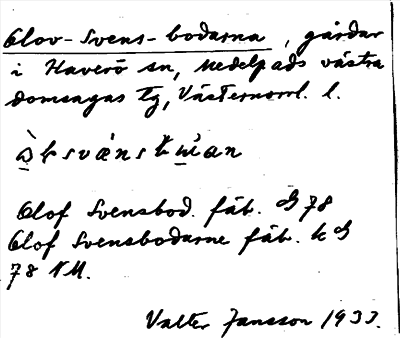 Olov-Svens-bodarna, gårdar
i Haverö sn, Medelpads västra
domsagas tg, Västernorrl. l.
Olof Svensbod. fäb. 78
Olof Svensbodarne fäb. k
78 NM.
Valter Jansson 1933.